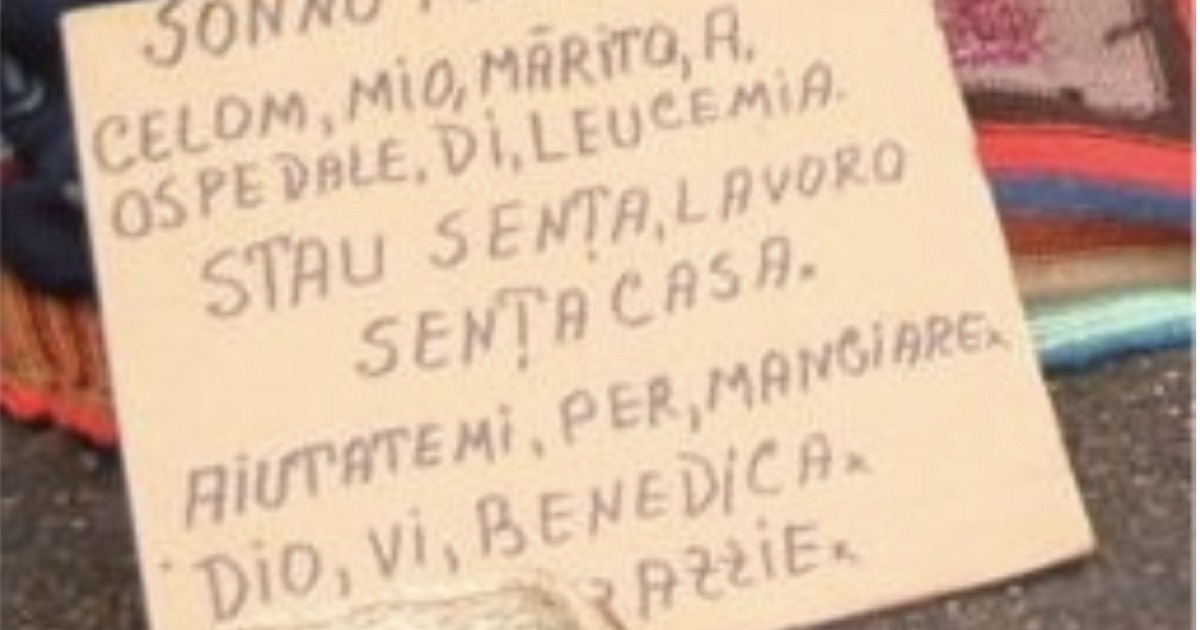 SONNO
CELOM, MiO, MĂRiTO, A.
OSPEDALE. Di, LEUCEMiA.
STAU SENȚA, LAVORO
SENȚA CASA.
AiUTATEMi, PER, MANGiARE.
DiO, Vi, BENEDiCA.
RAZZiE.